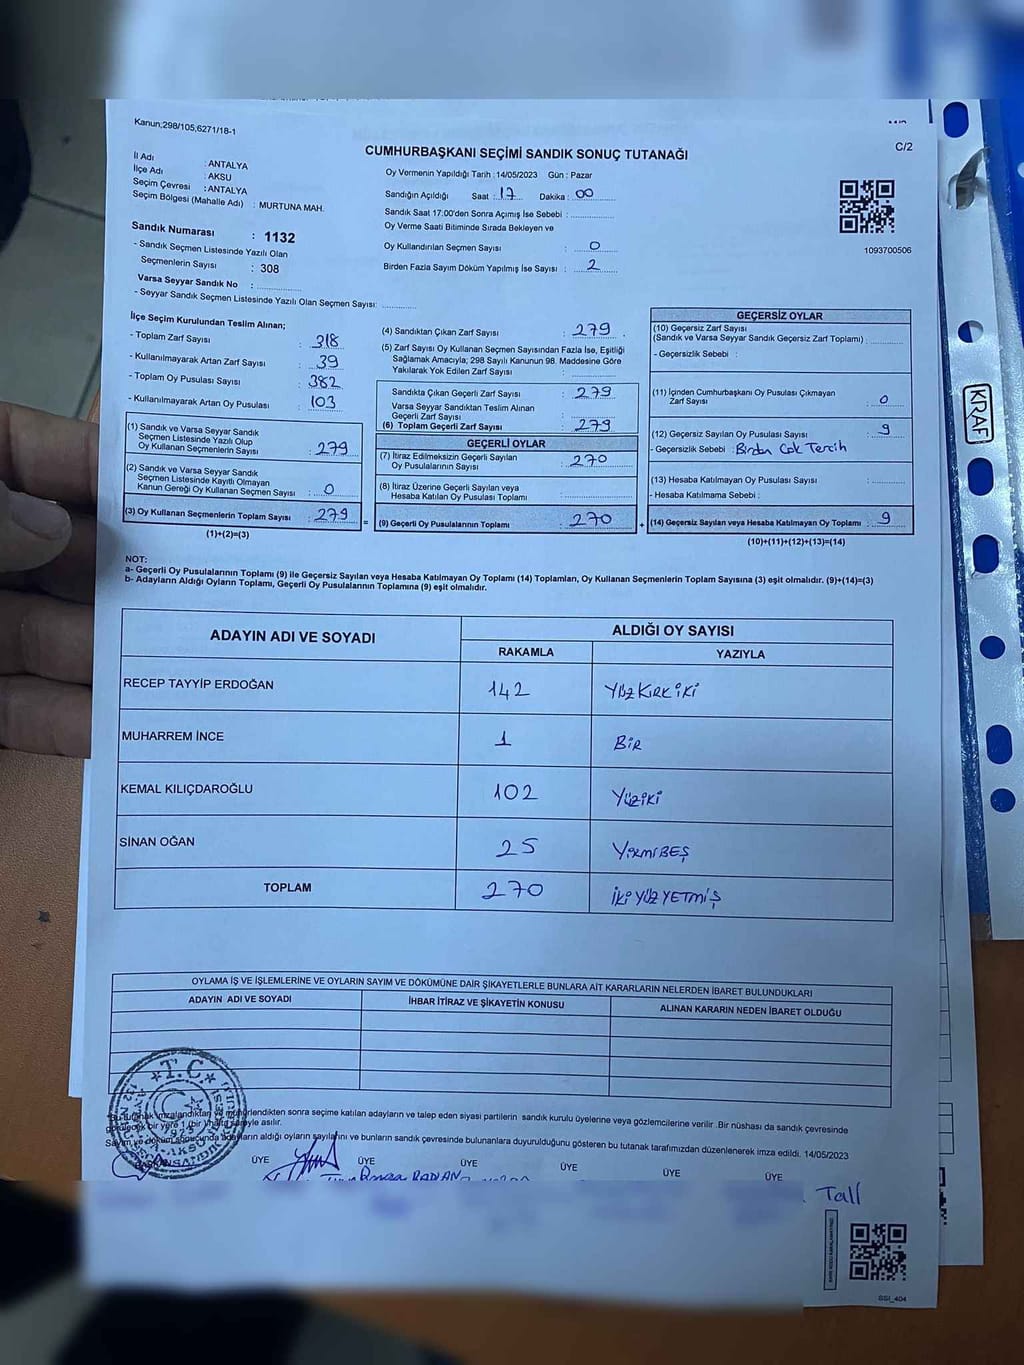 Kanun;298/105,6271/18-1
C/2
CUMHURBAŞKANI SEÇİMİ SANDIK SONUÇ TUTANAĞI
İl Adı : ANTALYA
İlçe Adı : AKSU
Seçim Çevresi : ANTALYA
Seçim Bölgesi (Mahalle Adı) : MURTUNA MAH.
Oy Vermenin Yapıldığı Tarih :14/05/2023 Gün : Pazar
Sandığın Açıldığı Saat : 17 Dakika : 00
Sandık Saat 17:00'den Sonra Açımış İse Sebebi :
Oy Verme Saati Bitiminde Sırada Bekleyen ve
Oy Kullandırılan Seçmen Sayısı : 0
Birden Fazla Sayım Döküm Yapılmış İse Sayısı : 2
1093700506
Sandık Numarası : 1132
- Sandık Seçmen Listesinde Yazılı Olan
Seçmenlerin Sayısı : 308
Varsa Seyyar Sandık No :
- Seyyar Sandık Seçmen Listesinde Yazılı Olan Seçmen Sayısı:
İlçe Seçim Kurulundan Teslim Alınan;
- Toplam Zarf Sayısı : 318
- Kullanılmayarak Artan Zarf Sayısı : 39
- Toplam Oy Pusulası Sayısı : 382
- Kullanılmayarak Artan Oy Pusulası : 103
(1) Sandık ve Varsa Seyyar Sandık
Seçmen Listesinde Yazılı Olup
Oy Kullanan Seçmenlerin Sayısı : 279
(2) Sandık ve Varsa Seyyar Sandık
Seçmen Listesinde Kayıtlı Olmayan
Kanun Gereği Oy Kullanan Seçmen Sayısı : 0
(3) Oy Kullanan Seçmenlerin Toplam Sayısı : 279
(1)+(2)=(3)
=
(4) Sandıktan Çıkan Zarf Sayısı : 279
(5) Zarf Sayısı Oy Kullanan Seçmen Sayısından Fazla İse, Eşitliği
Sağlamak Amacıyla; 298 Sayılı Kanunun 98. Maddesine Göre
Yakılarak Yok Edilen Zarf Sayısı :
Sandıkta Çıkan Geçerli Zarf Sayısı : 279
Varsa Seyyar Sandıktan Teslim Alınan
Geçerli Zarf Sayısı :
(6) Toplam Geçerli Zarf Sayısı : 279
GEÇERLİ OYLAR
(7) İtiraz Edilmeksizin Geçerli Sayılan
Oy Pusulalarının Sayısı : 270
(8) İtiraz Üzerine Geçerli Sayılan veya
Hesaba Katılan Oy Pusulası Toplamı :
(9) Geçerli Oy Pusulalarının Toplamı : 270
+
GEÇERSİZ OYLAR
(10) Geçersiz Zarf Sayısı
(Sandık ve Varsa Seyyar Sandık Geçersiz Zarf Toplamı) :
- Geçersizlik Sebebi :
(11) İçinden Cumhurbaşkanı Oy Pusulası Çıkmayan
Zarf Sayısı : 0
(12) Geçersiz Sayılan Oy Pusulası Sayısı : 9
- Geçersizlik Sebebi : Birden Çok Tercih
(13) Hesaba Katılmayan Oy Pusulası Sayısı :
- Hesaba Katılmama Sebebi :
(14) Geçersiz Sayılan veya Hesaba Katılmayan Oy Toplamı : 9
(10)+(11)+(12)+(13)=(14)
NOT:
a- Geçerli Oy Pusulalarının Toplamı (9) ile Geçersiz Sayılan veya Hesaba Katılmayan Oy Toplamı (14) Toplamları, Oy Kullanan Seçmenlerin Toplam Sayısına (3) eşit olmalıdır. (9)+(14)=(3)
b- Adayların Aldığı Oyların Toplamı, Geçerli Oy Pusulalarının Toplamına (9) eşit olmalıdır.
ADAYIN ADI VE SOYADI
ALDIĞI OY SAYISI
RAKAMLA YAZIYLA
RECEP TAYYİP ERDOĞAN 142 YÜZ KIRK İKİ
MUHARREM İNCE 1 BİR
KEMAL KILIÇDAROĞLU 102 YÜZİKİ
SİNAN OĞAN 25 YİRMİBEŞ
TOPLAM 270 İKİ YÜZ YETMİŞ
OYLAMA İŞ VE İŞLEMLERİNE VE OYLARIN SAYIM VE DÖKÜMÜNE DAİR ŞİKAYETLERLE BUNLARA AİT KARARLARIN NELERDEN İBARET BULUNDUKLARI
ADAYIN ADI VE SOYADI İHBAR İTİRAZ VE ŞİKAYETİN KONUSU ALINAN KARARIN NEDEN İBARET OLDUĞU
T.C.
1923
*Bu tutanak imzalandıktan ve mühürlendikten sonra seçime katılan adayların ve talep eden siyasi partilerin sandık kurulu üyelerine veya gözlemcilerine verilir .Bir nüshası da sandık çevresinde
görülecek bir yere 1 (bir) hafta süreyle asılır.
Sayım ve döküm sonucunda adayların aldığı oyların sayılarını ve bunların sandık çevresinde bulunanlara duyurulduğunu gösteren bu tutanak tarafımızdan düzenlenerek imza edildi. 14/05/2023
BAŞKAN ÜYE ÜYE ÜYE ÜYE ÜYE ÜYE
Tall
SSI_404
KRAF